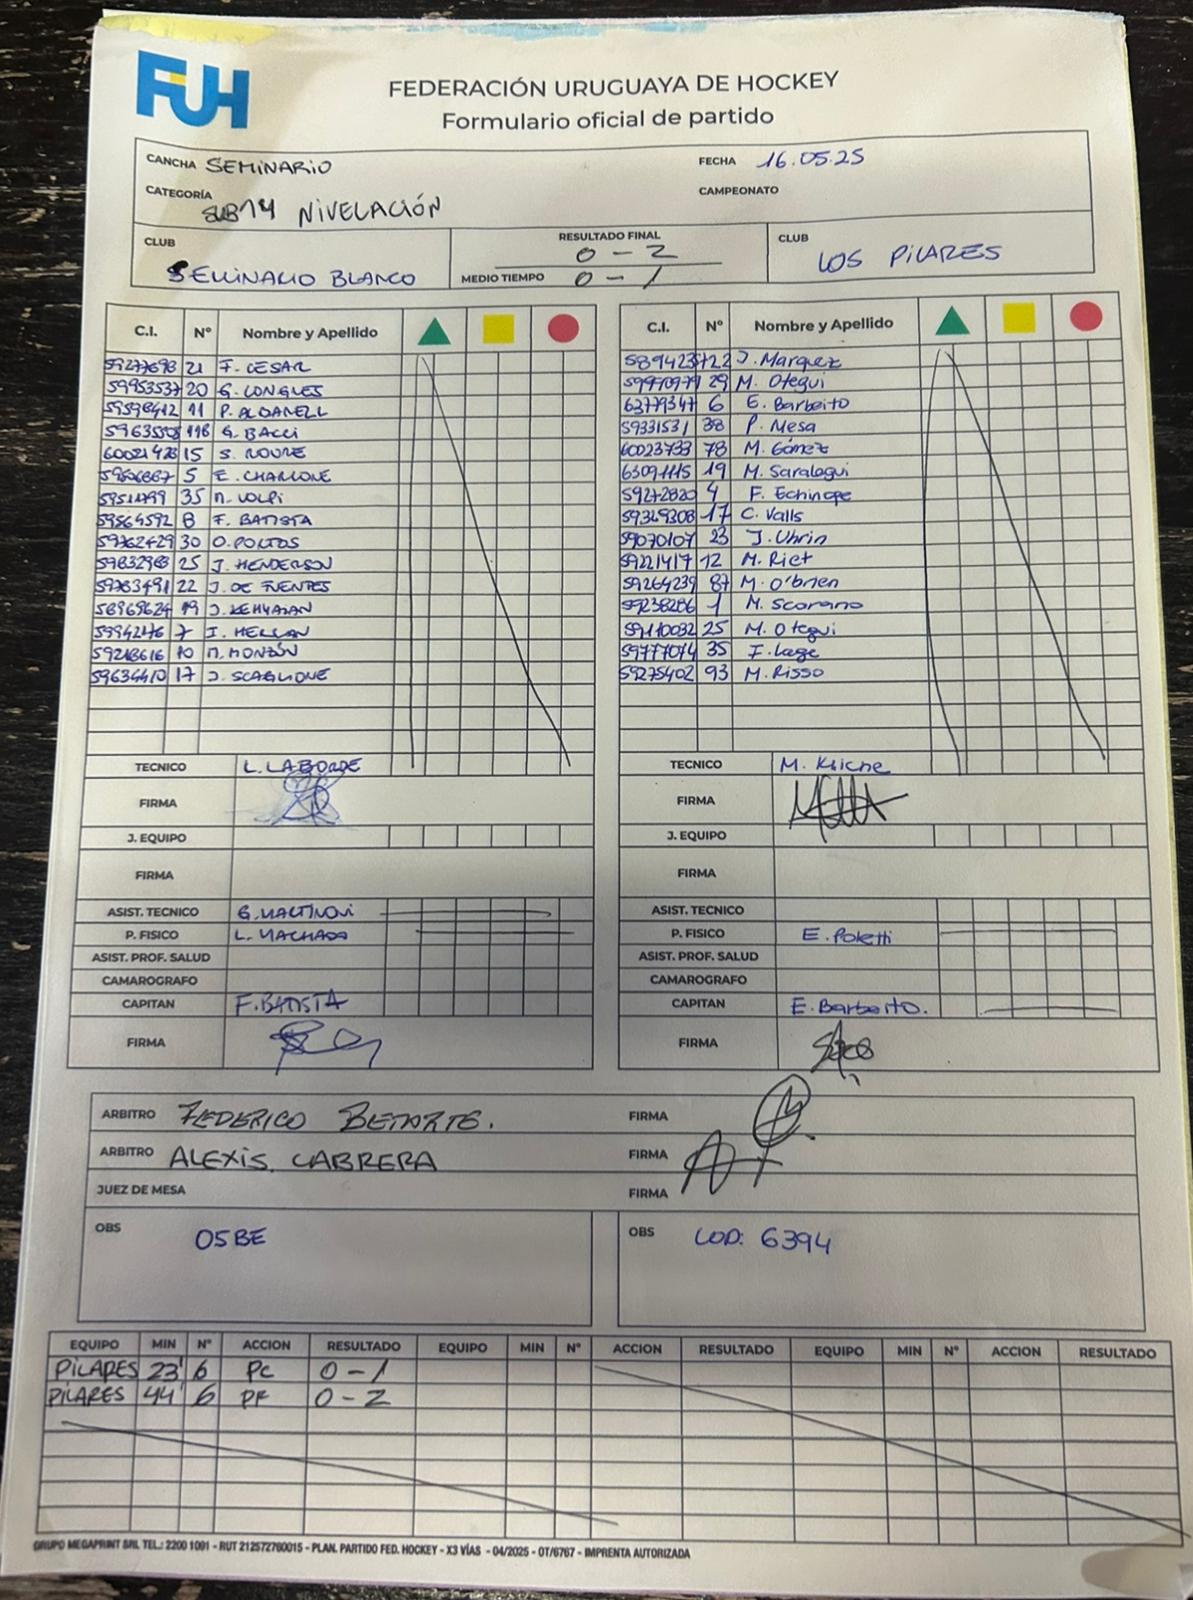 FUH
FEDERACIÓN URUGUAYA DE HOCKEY
Formulario oficial de partido
CANCHA SEMINARIO FECHA 16.05.25
CATEGORÍA SUB14 NIVELACIÓN CAMPEONATO
CLUB SEMINARIO BLANCO
RESULTADO FINAL 0-2
MEDIO TIEMPO 0-1
CLUB LOS PILARES
C.I. Nº Nombre y Apellido
59277693 21 F. CESAR
59953537 20 G. LONGLES
59598412 11 P. ALDANELL
116 G. BACCI
60021423 15 S. ROURE
5 E. CHARLONE
35 M. VOLPI
59564592 8 F. BATISTA
59762429 30 O. PORTOS
59832983 25 J. HENDERSON
59763491 22 J. DE FUENTES
58969624 19 J.
59942176 7 I.
59218616 10 M. MONZÓN
59634410 17 J. SCAGLIONE
TECNICO L. LABORDE
FIRMA
J. EQUIPO
FIRMA
ASIST. TECNICO G. MARTINOVI
P. FISICO L. MACHADO
ASIST. PROF. SALUD
CAMAROGRAFO
CAPITAN F. BATISTA
FIRMA
C.I. Nº Nombre y Apellido
58942357 22 J. Marquez
59970979 29 M. Otegui
63779347 6 E. Barbeito
59331531 38 P. Mesa
60023733 78 M. Gómez
63091115 19 M. Saralegui
59272820 4 F. Echinope
59349308 17 C. Valls
59070107 23 J. Uhrin
59221417 12 M. Riet
59264239 87 M. O'brien
59238286 1 M. Scorano
59110032 25 M. Otegui
59777074 35 F. Lage
59275402 93 M. Risso
TECNICO M. Kliche
FIRMA
J. EQUIPO
FIRMA
ASIST. TECNICO
P. FISICO E. Poletti
ASIST. PROF. SALUD
CAMAROGRAFO
CAPITAN E. Barbeito.
FIRMA
ARBITRO FEDERICO BETARTE. FIRMA
ARBITRO ALEXIS CABRERA FIRMA
JUEZ DE MESA FIRMA
OBS 05BE
OBS COD: 6394
EQUIPO MIN Nº ACCION RESULTADO EQUIPO MIN Nº ACCION RESULTADO EQUIPO MIN Nº ACCION RESULTADO
PILARES 23' 6 PC 0-1
PILARES 44' 6 PF 0-2
GRUPO MEGAPRINT SRL TEL.: 2200 1091 - RUT 212572760015 - PLAN. PARTIDO FED. HOCKEY - X3 VÍAS - 04/2025 - OT/6767 - IMPRENTA AUTORIZADA